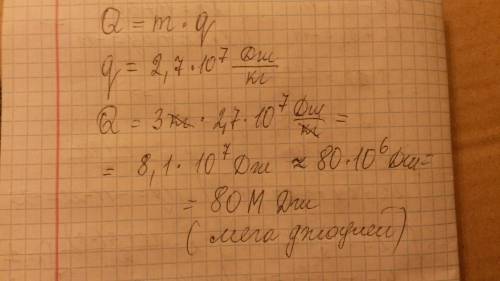 Q = m · q
q = 2,7 · 10⁷ Дж/кг
Q = 3 кг · 2,7 · 10⁷ Дж/кг =
= 8,1 · 10⁷ Дж ≈ 80 · 10⁶ Дж =
= 80 М Дж
(мега джоулей)